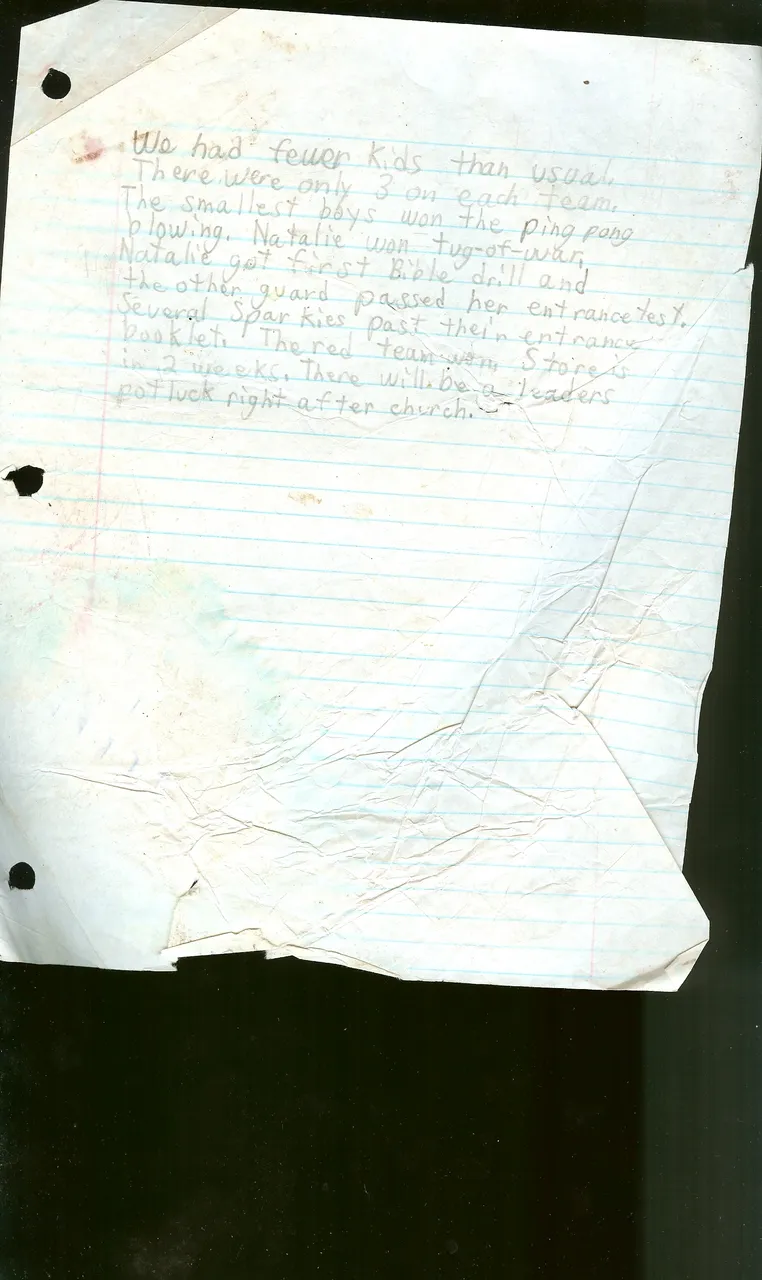 We had fewer kids than usual.
There were only 3 on each team.
The smallest boys won the ping pong
blowing. Natalie won tug-of-war,
Natalie got first Bible drill and
the other guard passed her entrance test.
Several Sparkies past their entrance
booklet. The red team won. Store is
in 2 weeks. There will be a leaders
potluck right after church.